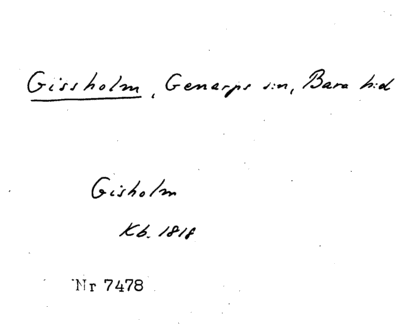 Gissholm, Genarps s:n, Bara h:d
Gisholm
Kb. 1818
Nr 7478